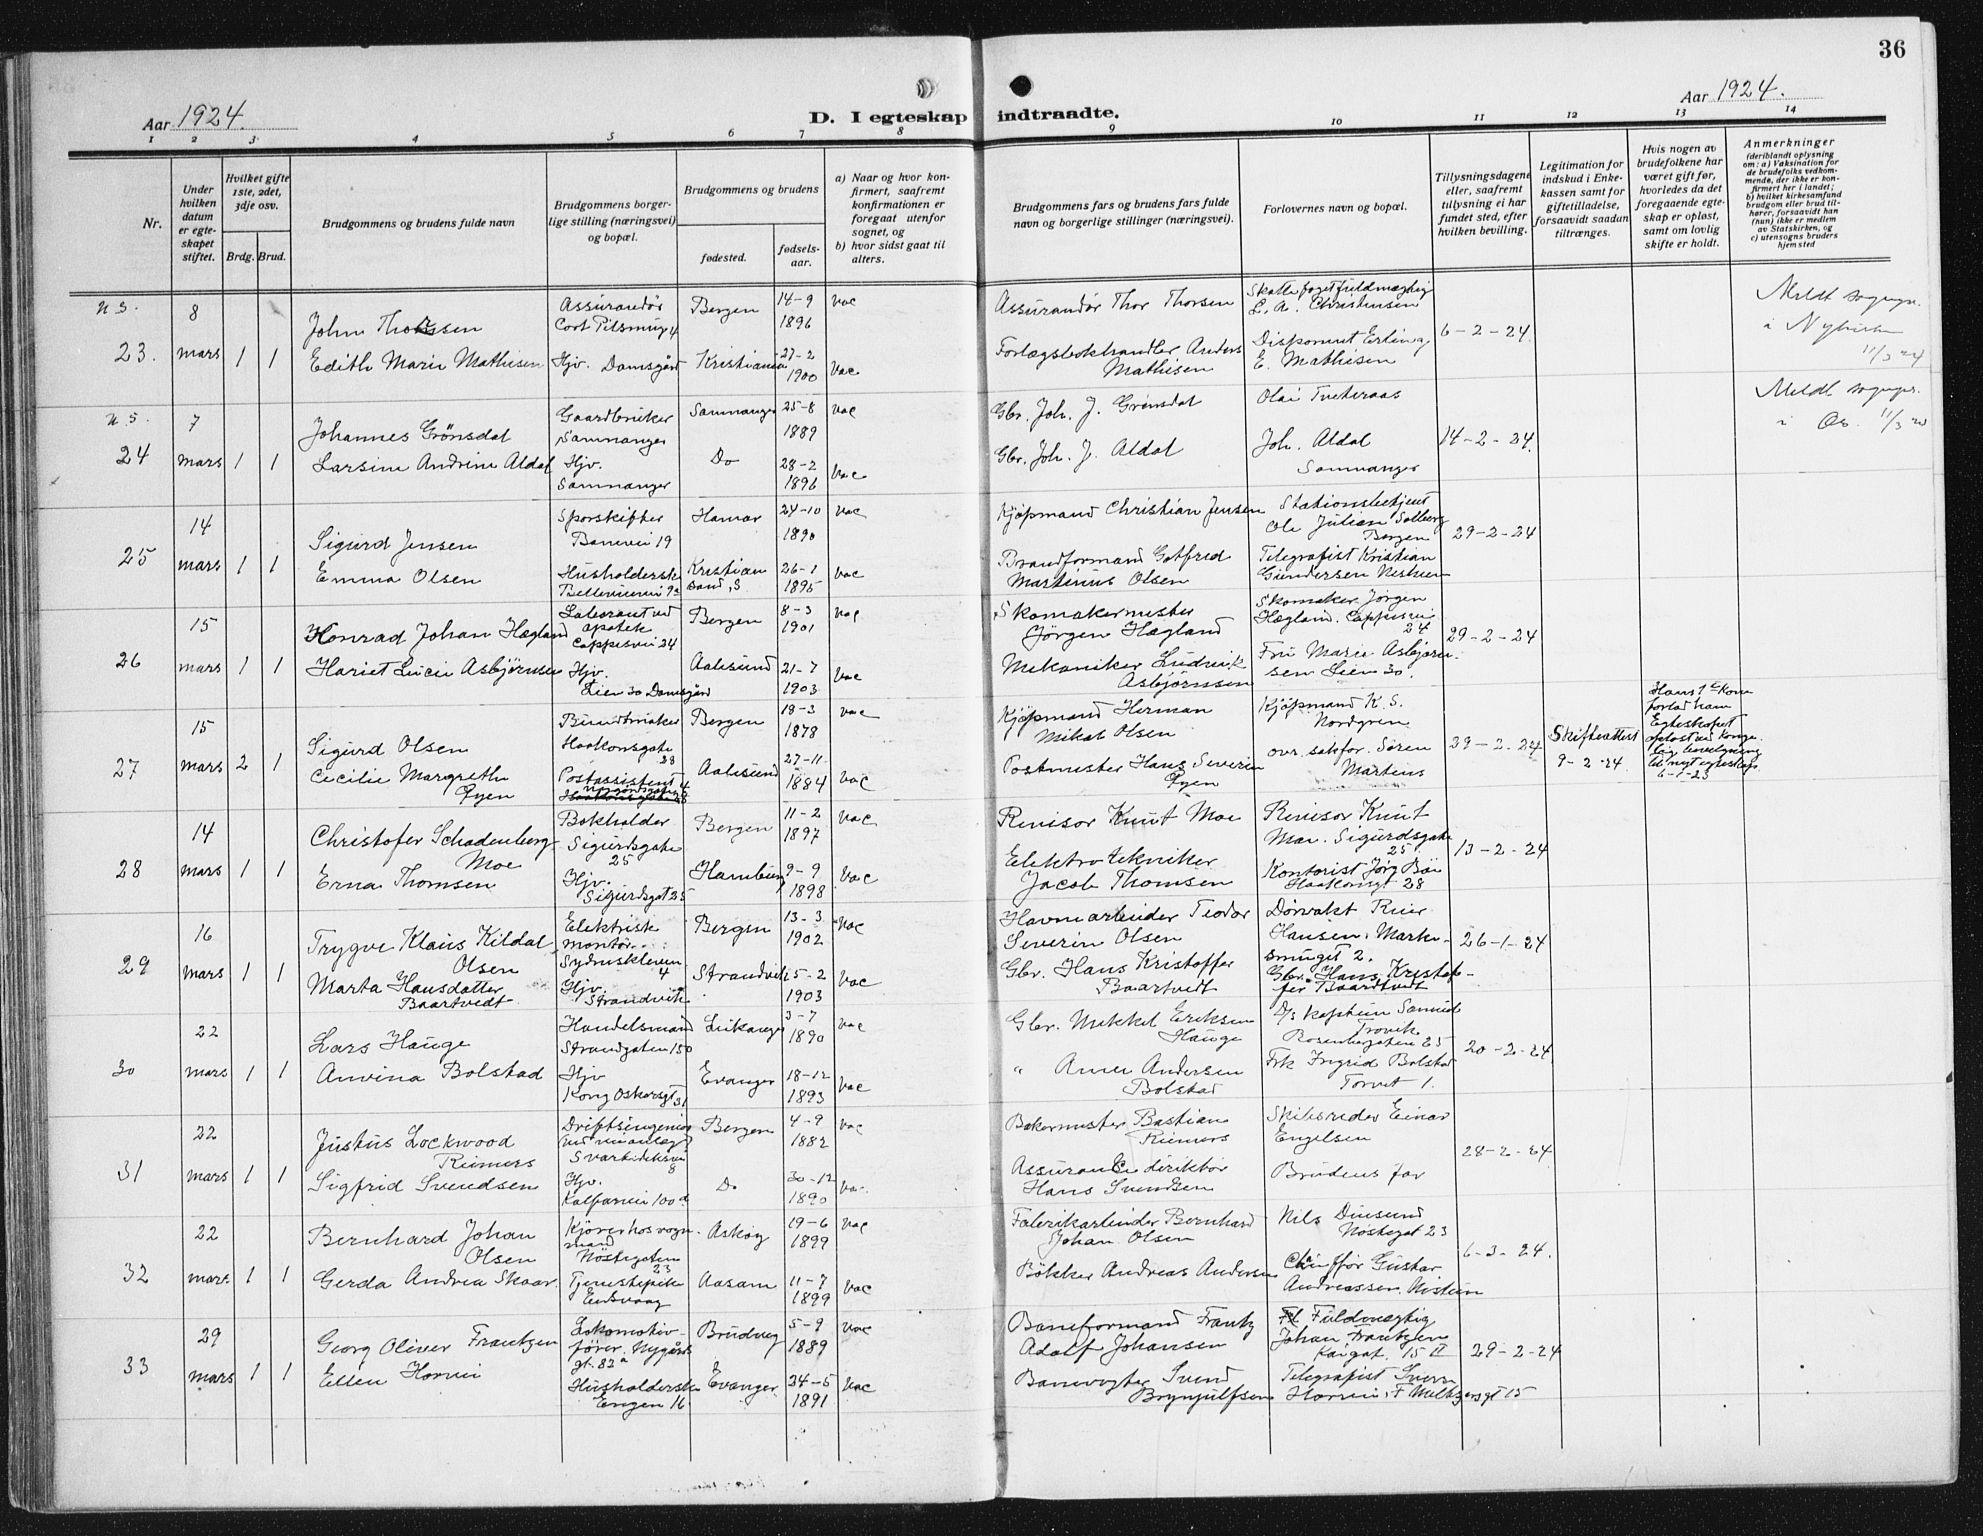 36
Aar 1924.
D. I egteskap indtraadte.
Aar 1924.
1 2 3 4 5 6 7 8 9 10 11 12 13 14
Nr.
Under hvilken datum er egteskapet stiftet.
Hvilket gifte 1ste, 2det, 3dje osv.
Brdg. Brud.
Brudgommens og brudens fulde navn
Brudgommens og brudens borgerlige stilling (næringsvei) og bopæl.
Brudgommens og brudens
fødested.
fødselsaar.
a) Naar og hvor konfirmert, saafremt konfirmationen er foregaat utenfor sognet, og
b) hvor sidst gaat til alters.
Brudgommens fars og brudens fars fulde navn og borgerlige stillinger (næringsvei).
Forlovernes navn og bopæl.
Tillysningsdagene eller, saafremt tillysning ei har fundet sted, efter hvilken bevilling.
Legitimation for indskud i Enkekassen samt for giftetilladelse, forsaavidt saadan tiltrænges.
Hvis nogen av brudefolkene har været gift før, hvorledes da det foregaaende egteskap er opløst, samt om lovlig skifte er holdt.
Anmerkninger
(deriblandt oplysning om: a) Vaksination for de brudefolks vedkommende, der ikke er konfirmert her i landet; b) hvilket kirkesamfund brudgom eller brud tilhører, forsaavidt han (hun) ikke er medlem av Statskirken, og c) utensogns bruders hjemsted
N 3.
23.
8 mars 1 1
John Thorssen
Assurandør
Bergen 14-9 1896 vac
Assurandør Thor Thorsen
L. A. Christensen
Edith Marie Mathisen
Hjv. Damsgård
Kristiania 27-2 1900 vac
Forlagsbokhandler Anders Mathisen
Disponent Erling E. Mathisen
6-2-24
11/3 24
N 5.
24
7 mars 1 1
Johannes Grønsdal
Gaardbruker Samnanger
Samnanger 25-8 1889 vac
Gbr. Joh. J. Grønsdal
Olai Tveteraas
Larsine Andrine Aldal
Hjv. Samnanger
Do 28-2 1896 vac
Gbr. Joh. J. Aldal
Joh. Aldal Samnanger
14-2-24
25
14 mars 1 1
Sigurd Jensen
Sporskifter Banevei 19
Hamar 24-10 1890 vac
Kjøpmand Christian Jensen
Stationsbetjent Ole Julian Solberg Bergen
Emma Olsen
Husholdersk
Kristiansand, S 26-1 1895 vac
Brandformand Gotfred Martinus Olsen
Telegrafist Kristian Gundersen
29-2-24
26
15 mars 1 1
Konrad Johan Hægland
Laborant ved apotek Cappesvei 24
Bergen 8-3 1901 vac
Skomakermester Jørgen Hægland
Skomaker Jørgen Hægland. Cappesvei 24
Hariet Lucie Asbjørnsen
Hjv. Lien 30 Damsgård
Aalesund 21-7 1903 vac
Mekaniker Ludvik Asbjørnsen
Fru Marie Asbjørnsen Lien 30.
29-2-24
27
15 mars 2 1
Sigurd Olsen
Buntmaker Haakonsgate 28
Bergen 18-3 1878 vac
Kjøpmand Herman Mikal Olsen
Kjøpmand K. S. Nordgren
Cecilie Margrethe Ryen
Postassistent
Aalesund 27-11 1884 vac
Postmester Hans Severin Ryen
ovr. sakfør. Søren Martens
29-2-24
Skifteattest 9-2-24
Hans 1ste kone forlod ham
Egteskapet opløst ved
til nyt egteskap
6-1-23
28
14 mars 1 1
Christofer Schadenberg Moe
Bokholder Sigurdsgate 25
Bergen 11-2 1897 vac
Revisor Knut Moe
Revisor Knut Moe. Sigurdsgate 25
Erna Thomsen
Hjv. Sigurdsgat 25
Hamburg 9-9 1898 vac
Elektrotekniker Jacob Thomsen
Kontorist Jørg Bøe Haakonsgt 28
13-2-24
29
16 mars 1 1
Trygve Klaus Kildal Olsen
Elektrisk montør Sydneskleven 4
Bergen 13-3 1902 vac
Havnearbeider Teodor Severin Olsen
Dørvakt Peier Hansen. Markesmuget 2.
Marta Hansdatter Baartvedt
Hjv. Strandvik
Strandvik 5-2 1903 vac
Gbr. Hans Kristoffer Baartvedt
Gbr. Hans Kristoffer Baardtvedt
26-1-24
30
22 mars 1 1
Lars Hauge
Handelsmand Strandgaten 150
Leikanger 3-7 1890 vac
Gbr. Mikkel Eriksen Hauge
D/s kaptein Samuel Trovik Rosenbergsgaten 25
Anvina Bolstad
Hjv Kong Oskarsgt 31
Evanger 18-12 1893 vac
" Arne Andersen Bolstad
Frk Ingrid Bolstad Torvet 1.
20-2-24
31
22 mars 1 1
Justus Lockwood Reimers
Driftsingeniør Svartediksvei 8
Bergen 4-9 1882 vac
Bakermester Bastian Reimers
Skibsreder Einar Engelsen
Sigfrid Svendsen
Hjv. Kalfarvei 100 d
Do 30-12 1890 vac
Assurance direktør Hans Svendsen
Brudens far
28-2-24
32
22 mars 1 1
Bernhard Johan Olsen
Kjører hos vognmand Nøstegaten 23
Askøy 19-6 1899 vac
Fabrikarbeider Bernhard Johan Olsen
Nils Dinsund Nøstegat 23
Gerda Andrea Skaar
Tjenestepike Eidsvaag
Aasam 11-7 1899 vac
Bøkker Andreas Andersen
Chauffør Gustav Andreassen
6-3-24.
33
29 mars 1 1
Georg Oliver Frantzen
Lokomotivfører. Nygårdsgt. 82a
Brudvig 5-9 1889 vac
Baneformand Frantz Adolf Johansen
Fuldmægtig Johan Frantzen Kaigat. 15 II
Ellen Horvei
Husholdersk Engen 16
Evanger 24-5 1891 vac
Banevogter Svend Brynjulfsen
Telegrafist Sverre Horvei, F Meltzersgt 15
29-2-24